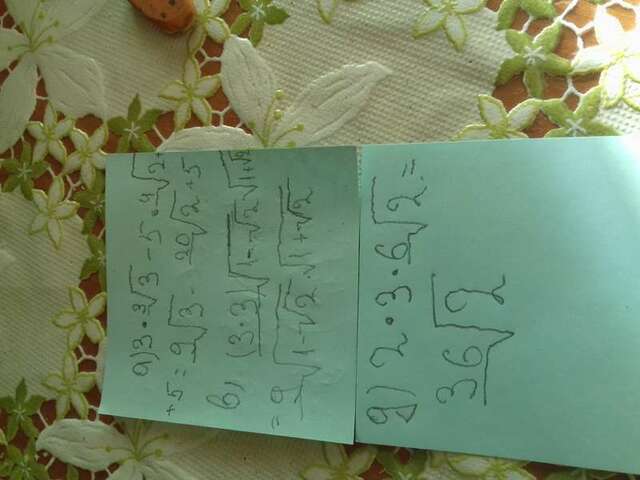 а) 3 · ³√3 - 5 · ⁴√2 +
+5 = 9√3 - 20√2 + 5
в) (3·3)√1-√2 √1+√2
= 9√1-√2 · √1+√2
д) 2 · 3 · 6√2 =
36√2